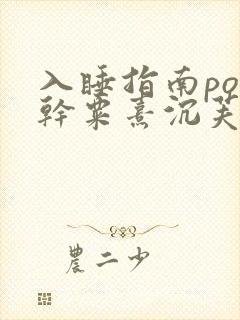 入睡指南po
幹粟熹沉芙
農二少